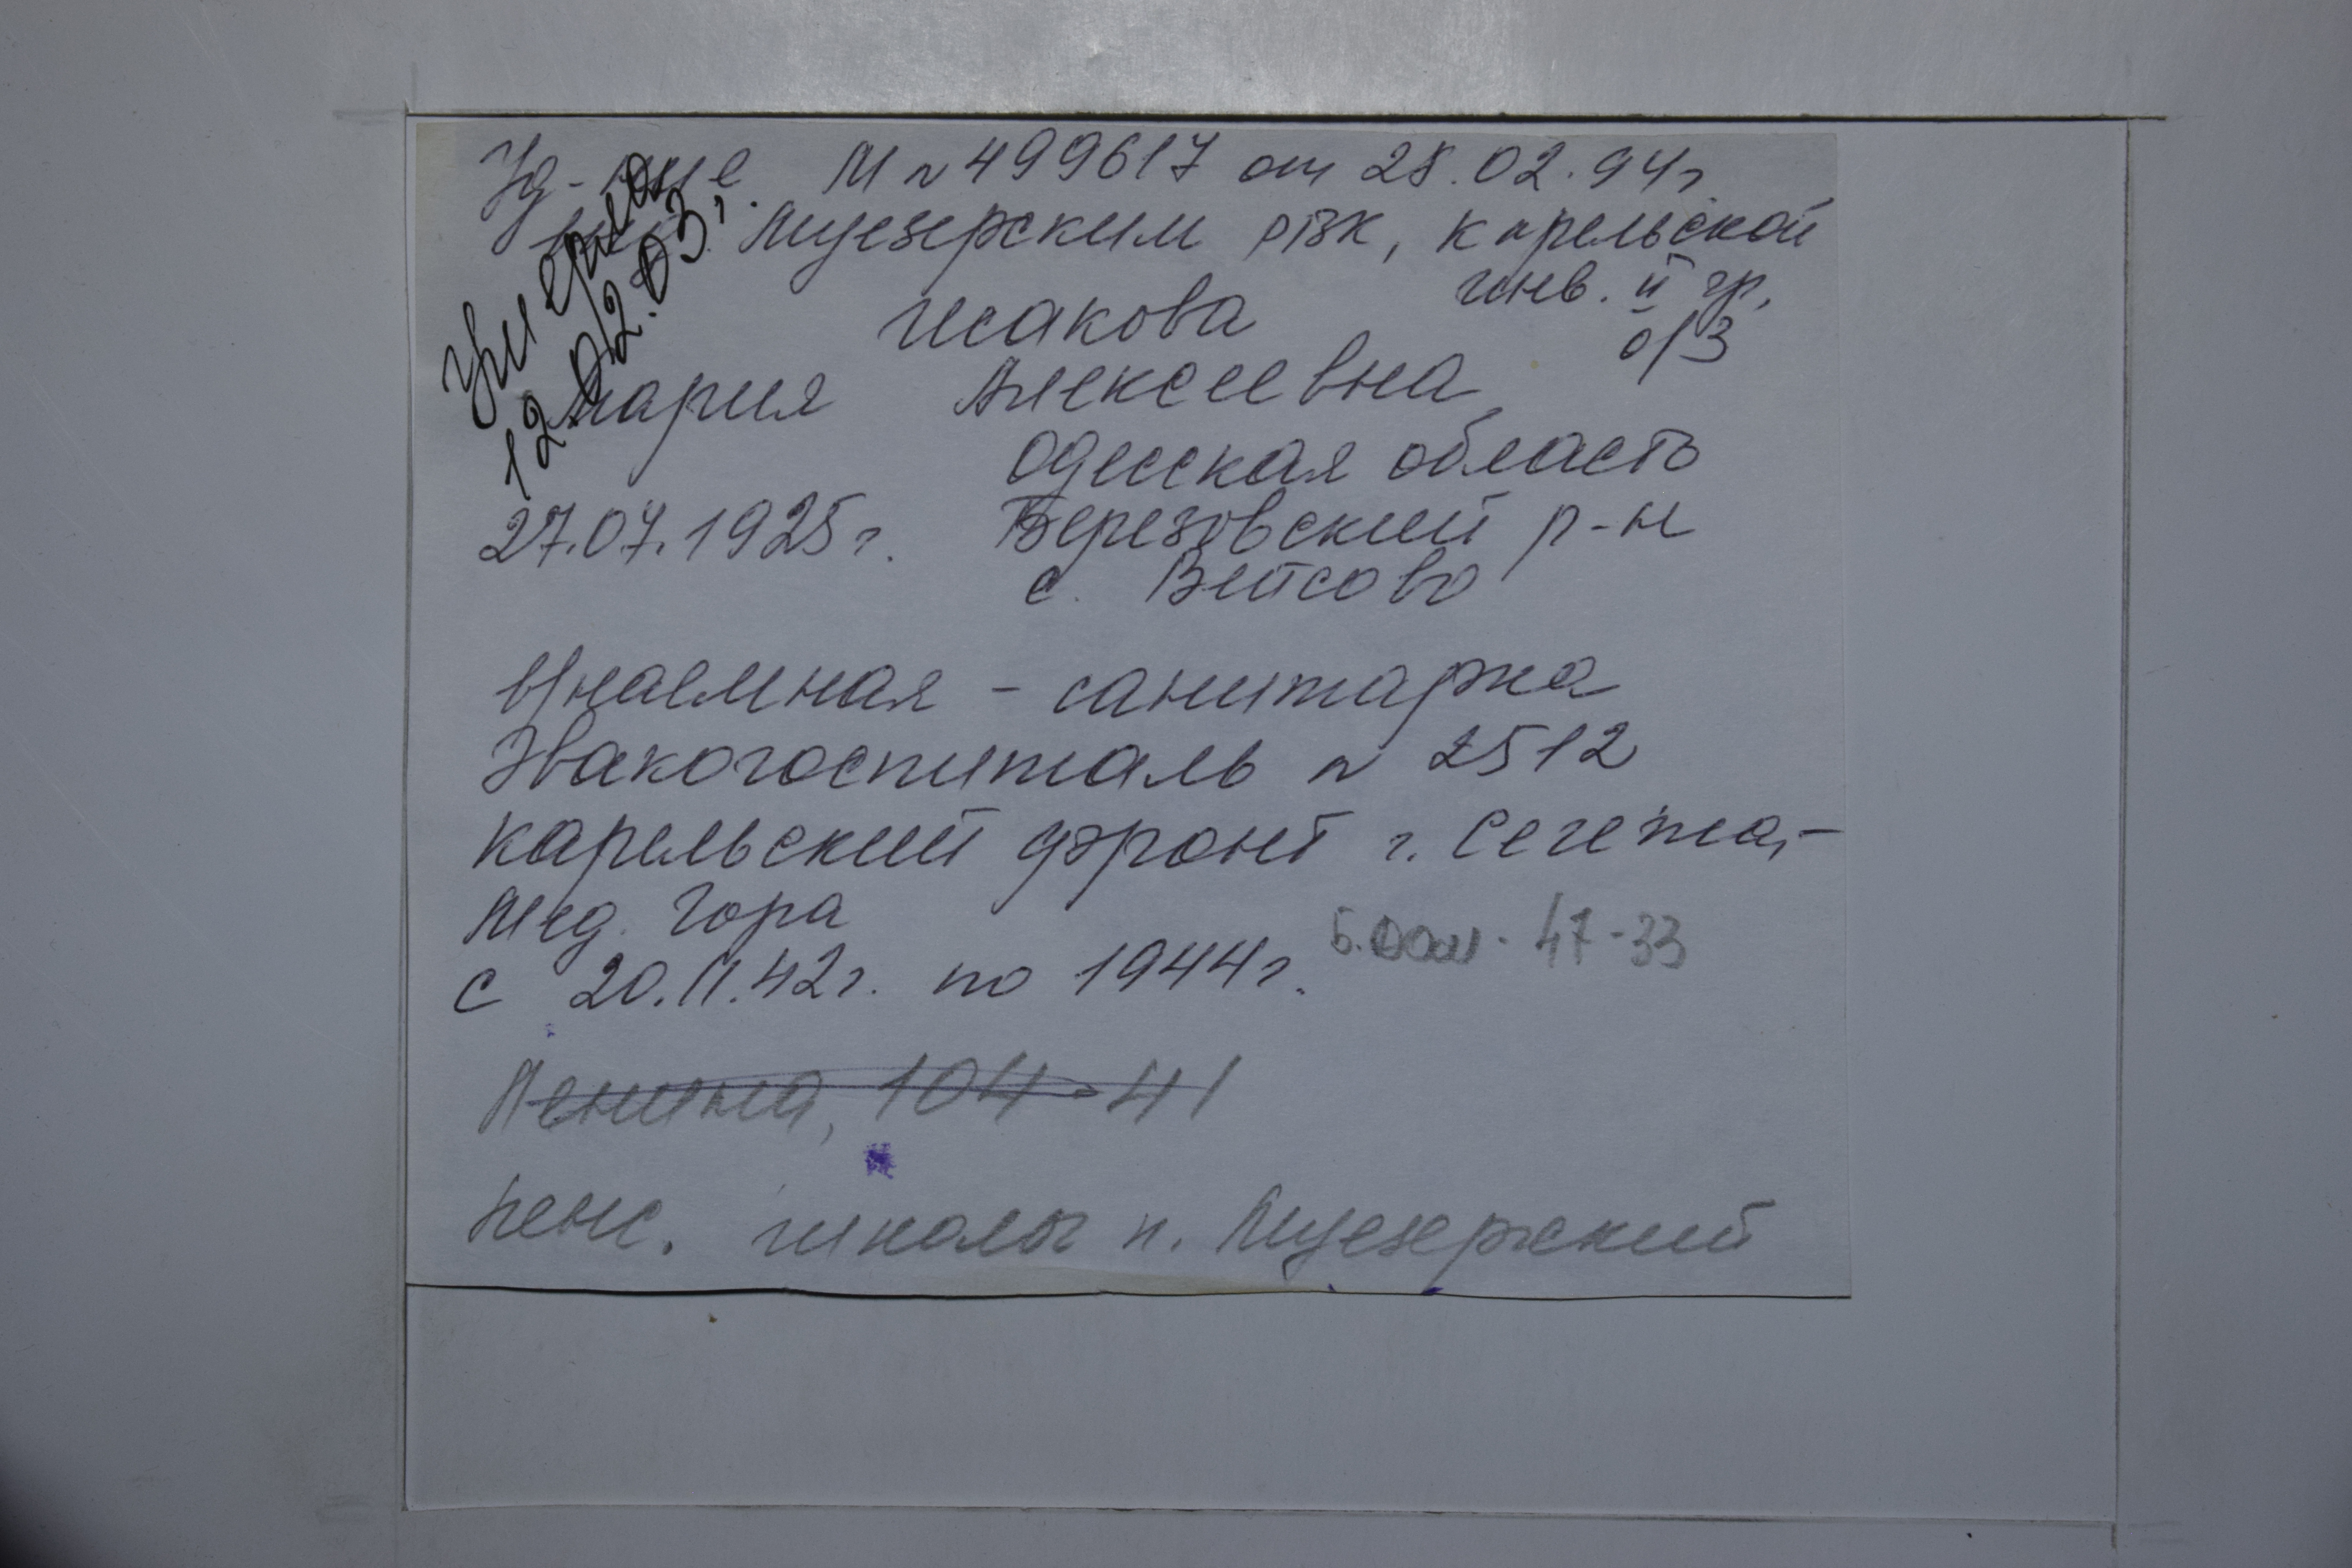 Уд-ние М № 499617 от 28.02.94г.
выд. Муезерским РВК, Карельской
инв. II гр.
о/з
умерла
12.02.03г.
Исакова
Мария Алексеевна
Одесская область
27.07.1925г. Березовский р-н
с. Виисово
Внаемная - санитарка
Эвакогоспиталь № 2512
Карельский фронт г. Сегежа,-
Мед. Гора
с 20.11.42г. по 1944г. 47-33
Ленина, 104-41
пенс. школы п. Муезерский